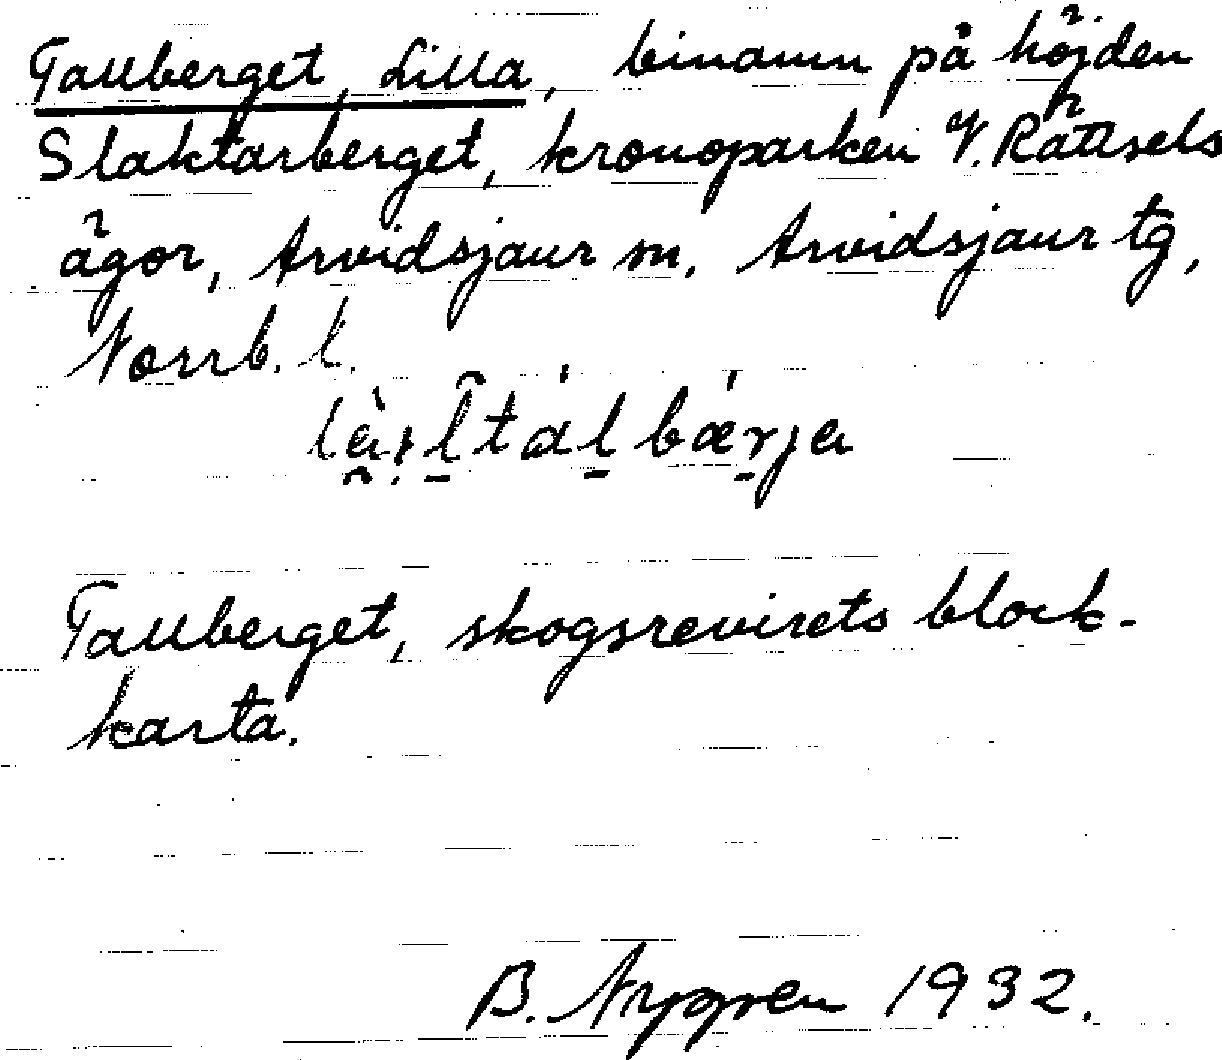 Tallberget, Lilla, binamn på höjden
Slaktarberget, kronoparken V. Rättsels
ägor, Arvidsjaur sn. Arvidsjaur tg,
Norrb. l.
Tallberget, skogsrevirets block-
karta.
B. Nygren 1932.